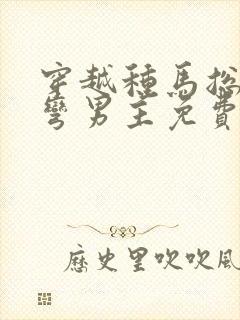 穿越种馬掰
彎男主免費
歷史里吹吹風